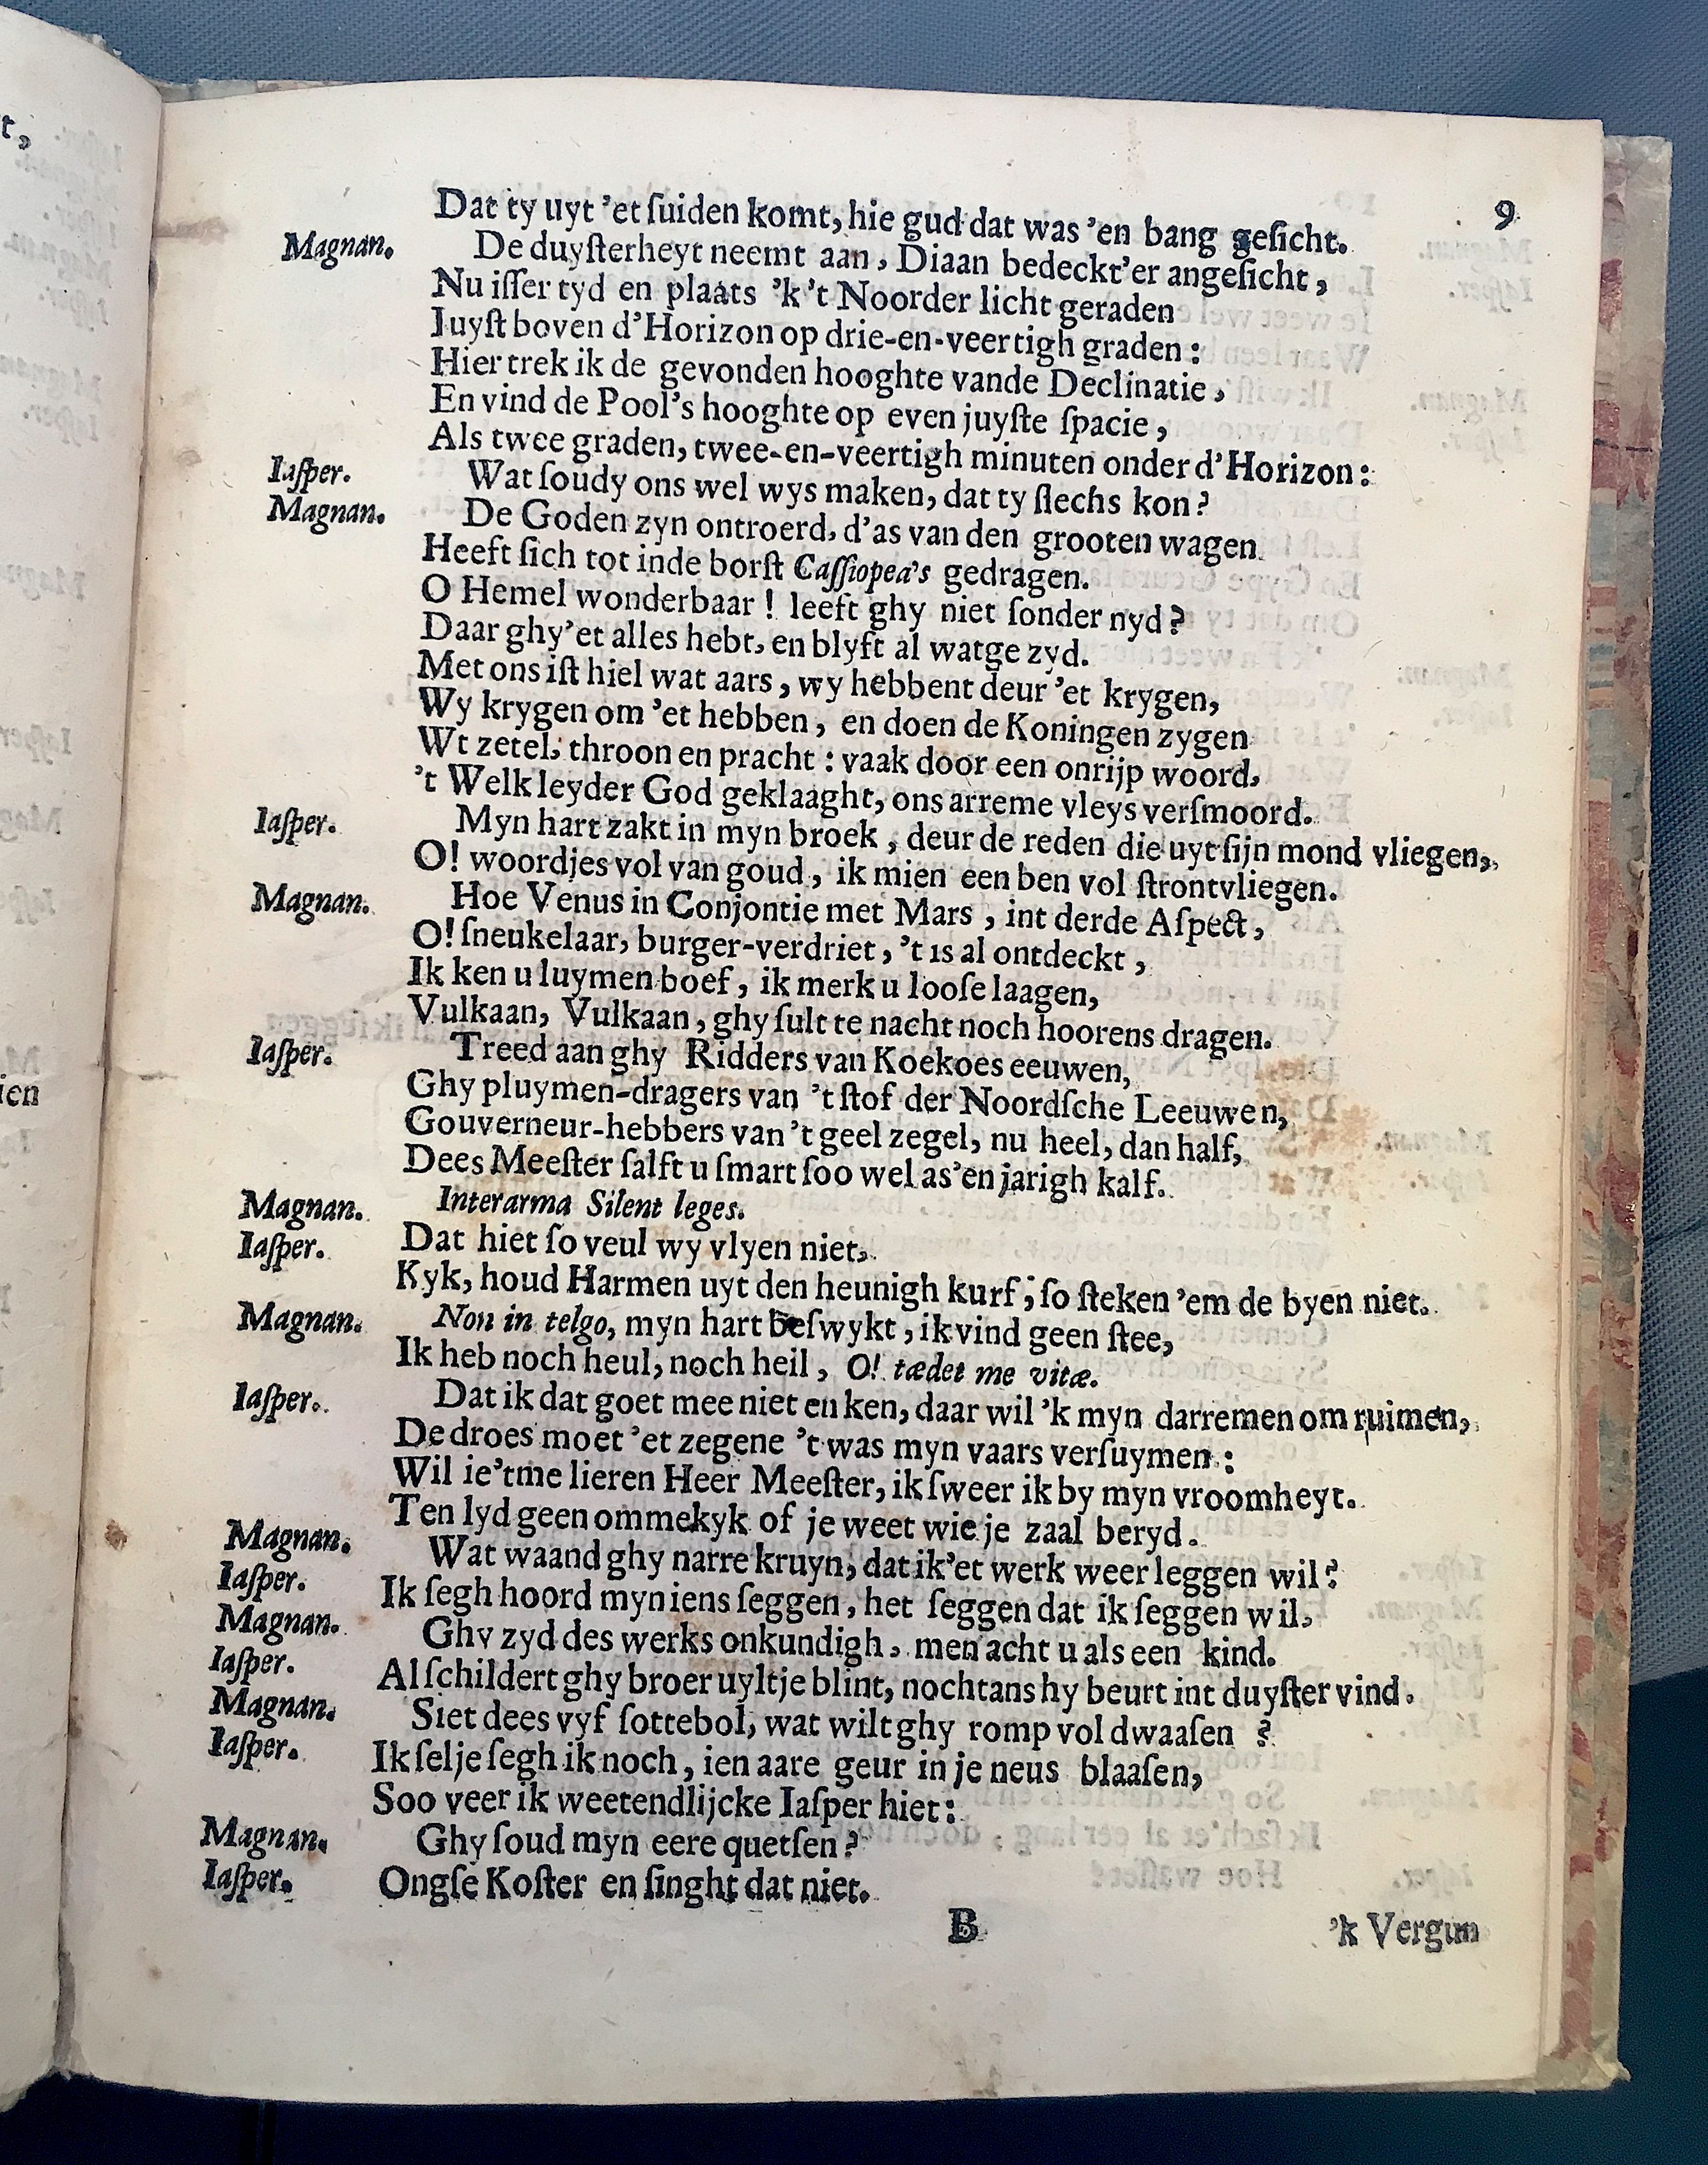 9
Dat ty uyt 'et ſuiden komt, hie gud dat was 'en bang geſicht.
Magnan. De duyſterheyt neemt aan, Diaan bedeckt'er angeſicht,
Nu iſſer tyd en plaats 'k 't Noorder licht geraden
Juyſt boven d'Horizon op drie-en-veertigh graden:
Hier trek ik de gevonden hooghte vande Declinatie,
En vind de Pool's hooghte op even juyſte ſpacie,
Als twee graden, twee-en-veertigh minuten onder d'Horizon:
Iaſper. Wat ſoudy ons wel wys maken, dat ty ſlechs kon?
Magnan. De Goden zyn ontroerd, d'as van den grooten wagen
Heeft ſich tot inde borſt Caſſiopea's gedragen.
O Hemel wonderbaar! leeft ghy niet ſonder nyd?
Daar ghy'et alles hebt, en blyft al watge zyd.
Met ons iſt hiel wat aars, wy hebbent deur 'et krygen,
Wy krygen om 'et hebben, en doen de Koningen zygen
Wt zetel, throon en pracht: vaak door een onrijp woord,
't Welk leyder God geklaaght, ons arreme vleys verſmoord.
Iaſper. Myn hart zakt in myn broek, deur de reden die uyt ſijn mond vliegen,
O! woordjes vol van goud, ik mien een ben vol ſtrontvliegen.
Magnan. Hoe Venus in Conjontie met Mars, int derde Aſpect,
O! ſneukelaar, burger-verdriet, 't is al ontdeckt,
Ik ken u luymen boef, ik merk u looſe laagen,
Vulkaan, Vulkaan, ghy ſult te nacht noch hoorens dragen.
Iaſper. Treed aan ghy Ridders van Koekoes eeuwen,
Ghy pluymen-dragers van 't ſtof der Noordſche Leeuwen,
Gouverneur-hebbers van 't geel zegel, nu heel, dan half,
Dees Meeſter ſalft u ſmart ſoo wel as'en jarigh kalf.
Magnan. Interarma Silent leges.
Iaſper. Dat hiet ſo veul wy vlyen niet,
Kyk, houd Harmen uyt den heunigh kurf; ſo ſteken 'em de byen niet.
Magnan. Non in telgo, myn hart beſwykt, ik vind geen ſtee,
Ik heb noch heul, noch heil, O! tædet me vitæ.
Iaſper. Dat ik dat goet mee niet en ken, daar wil 'k myn darremen om ruimen,
De droes moet 'et zegene 't was myn vaars verſuymen:
Wil ie'tme lieren Heer Meeſter, ik ſweer ik by myn vroomheyt.
Ten lyd geen ommekyk of je weet wie je zaal beryd.
Magnan. Wat waand ghy narre kruyn, dat ik'et werk weer leggen wil?
Iaſper. Ik ſegh hoord myn iens ſeggen, het ſeggen dat ik ſeggen wil,
Magnan. Ghy zyd des werks onkundigh, men acht u als een kind.
Iaſper. Al ſchildert ghy broer uyltje blint, nochtans hy beurt int duyſter vind.
Magnan. Siet dees vyf ſottebol, wat wilt ghy romp vol dwaaſen?
Iaſper. Ik ſelje ſegh ik noch, ien aare geur in je neus blaaſen,
Soo veer ik weetendlijcke Iaſper hiet:
Magnan. Ghy ſoud myn eere quetſen?
Iaſper. Ongſe Koſter en ſinght dat niet.
B 'k Vergun